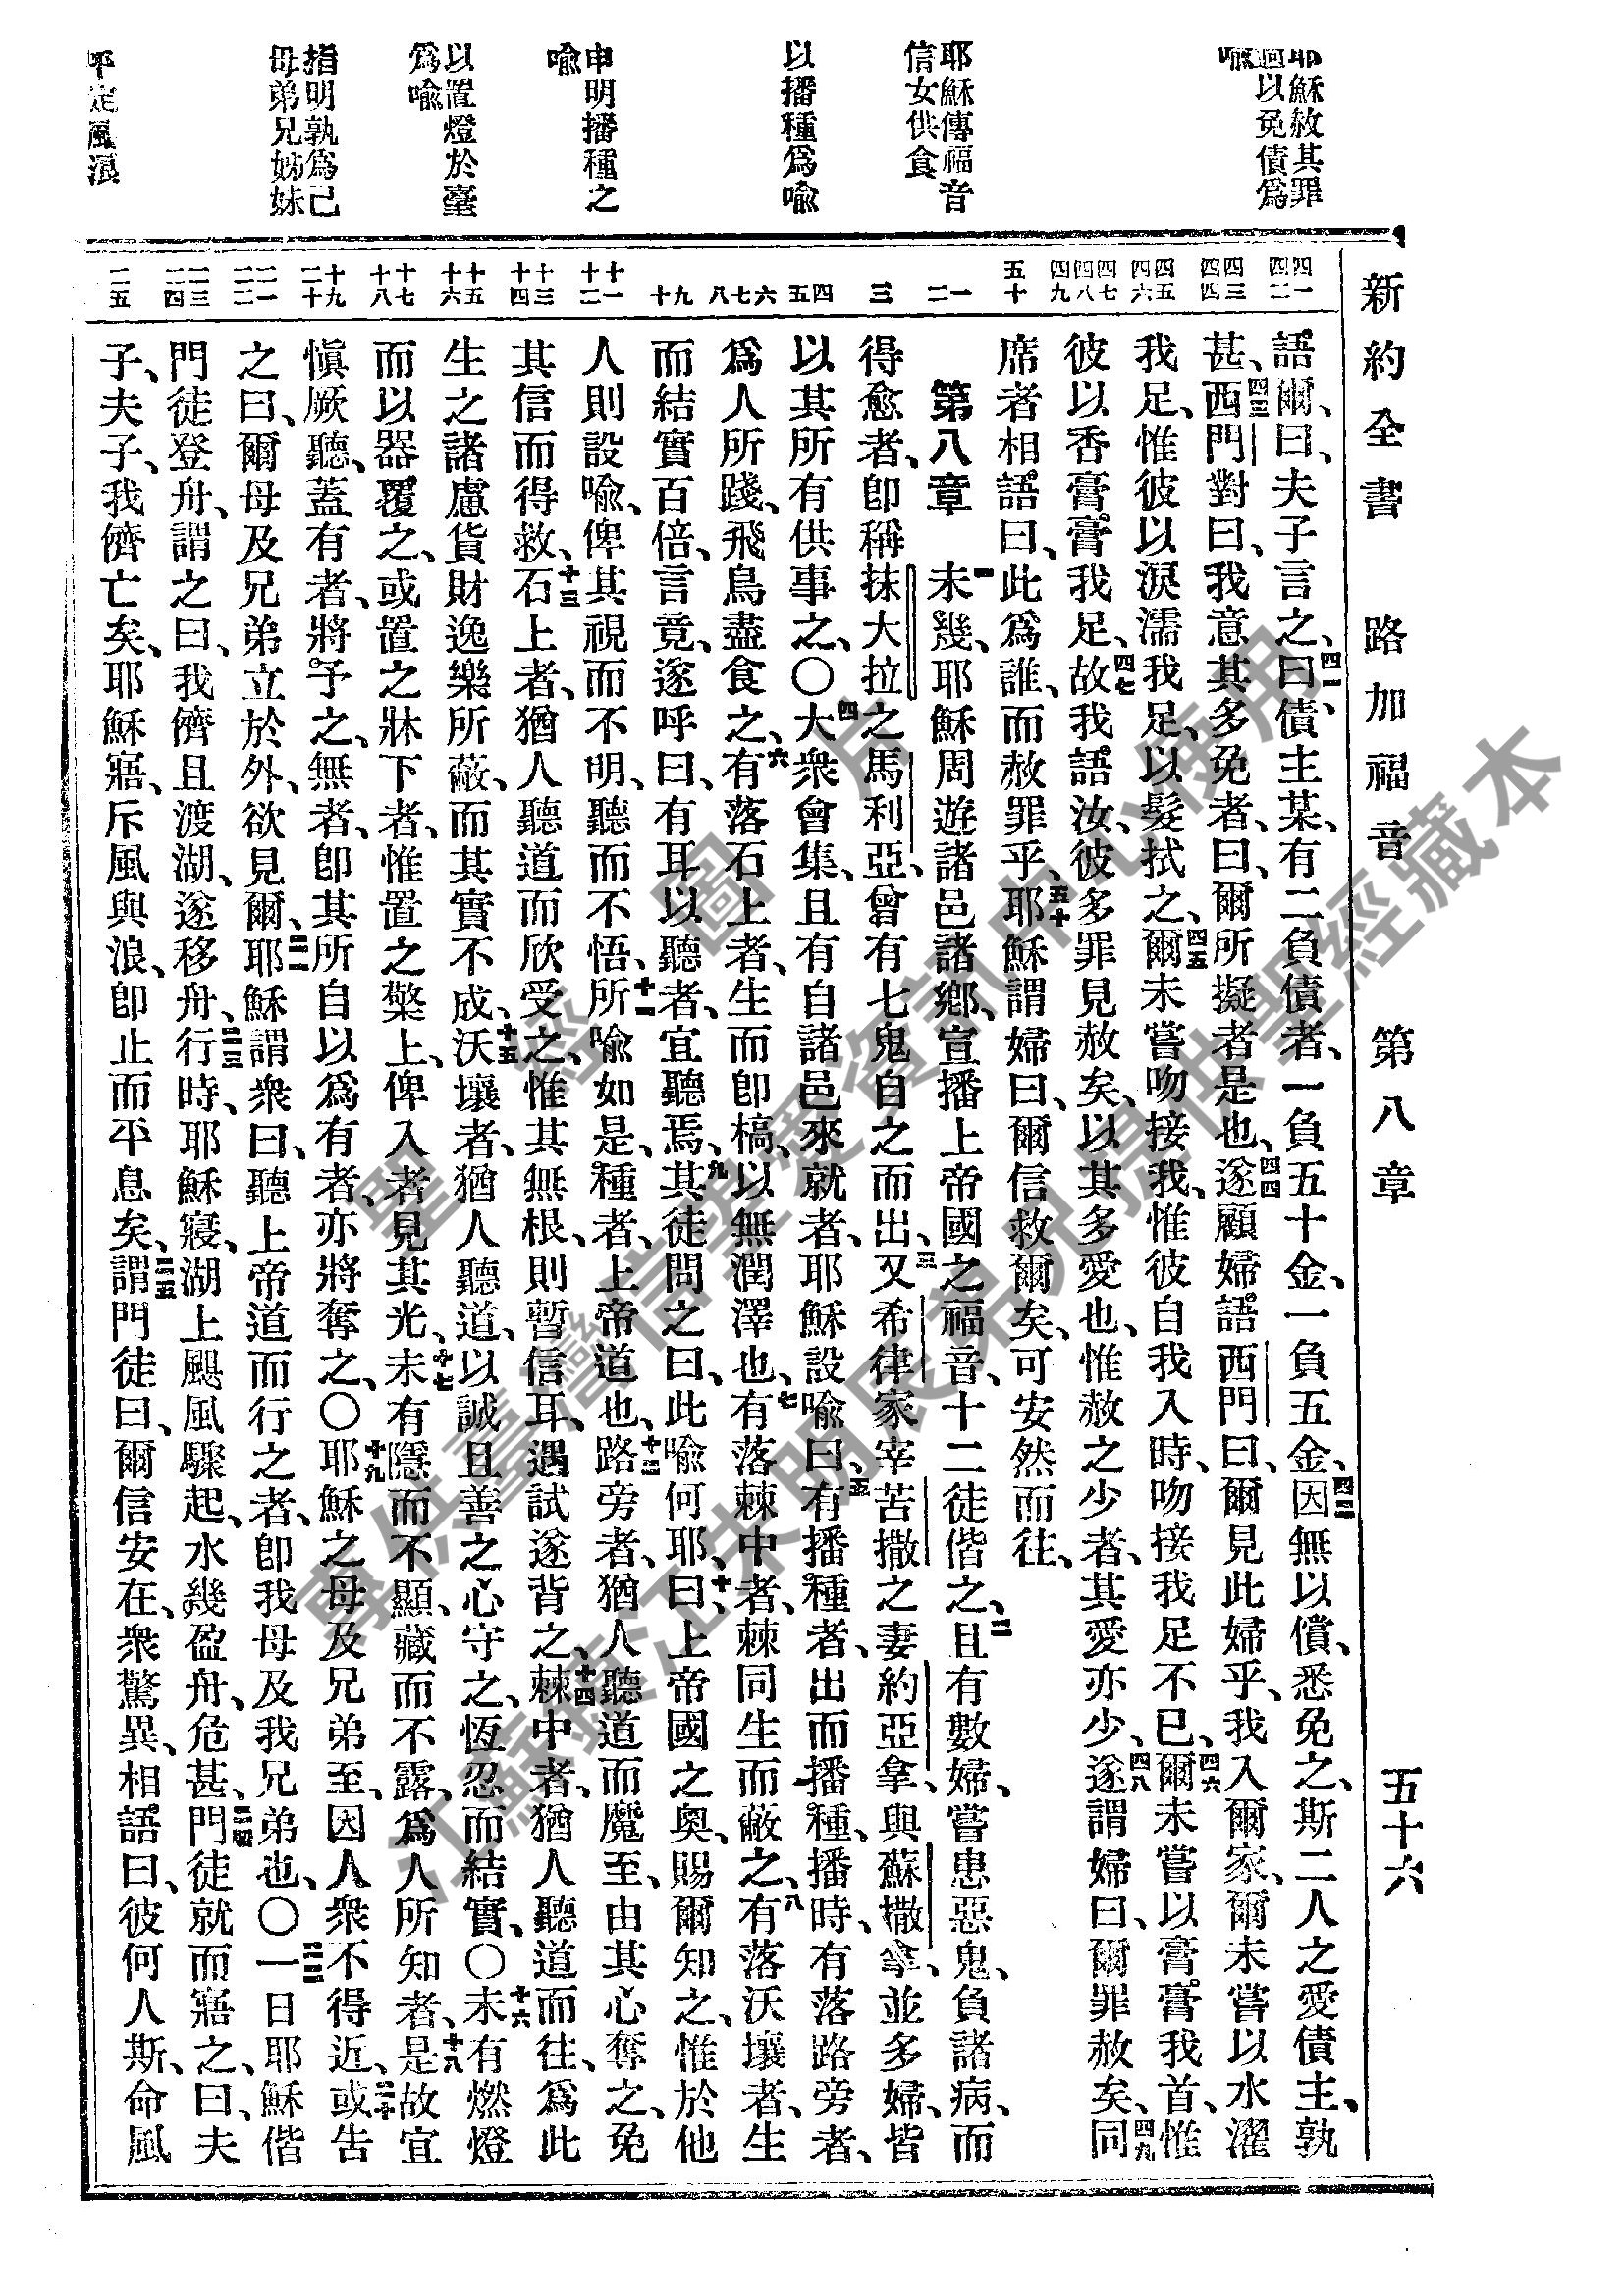 新約全書 路加福音 第八章 五十六
耶穌赦其罪
以免債爲
喻
耶穌傳福音
信女供食
以播種爲喻
申明播種之
喻
以置燈於臺
爲喻
指明孰爲己
母弟兄姊妹
平定風浪
四一 四二 四三 四四 四五 四六 四七 四八 四九 五十 一 二 三 四 五 六 七 八 九 十 十一 十二 十三 十四 十五 十六 十七 十八 十九 二十 二一 二二 二三 二四 二五
語爾、曰、夫子言之、四一曰、債主某、有二負債者、一負五十金、一負五金、四二因無以償、悉免之、斯二人之愛債主、孰
甚、四三西門對曰、我意其多免者、曰、爾所擬者是也、四四遂顧婦語西門曰、爾見此婦乎、我入爾家、爾未嘗以水濯
我足、惟彼以淚濡我足、以髮拭之、四五爾未嘗吻接我、惟彼自我入時、吻接我足不已、四六爾未嘗以膏膏我首、惟
彼以香膏膏我足、四七故我語汝、彼多罪見赦矣、以其多愛也、惟赦之少者、其愛亦少、四八遂謂婦曰、爾罪赦矣、四九同
席者相語曰、此爲誰、而赦罪乎、五十耶穌謂婦曰、爾信救爾矣、可安然而往、
第八章 一未幾、耶穌周遊諸邑諸鄉、宣播上帝國之福音、十二徒偕之、二且有數婦、嘗患惡鬼、負諸病、而
得愈者、卽稱抹大拉之馬利亞、曾有七鬼自之而出、三又希律家宰苦撒之妻約亞拿、與蘇撒拿、並多婦、皆
以其所有供事之、〇四大衆會集、且有自諸邑來就者、耶穌設喻曰、五有播種者、出而播種、播時、有落路旁者、
爲人所踐、飛鳥盡食之、六有落石上者、生而卽槁、以無潤澤也、七有落棘中者、棘同生而蔽之、八有落沃壤者、生
而結實百倍、言竟、遂呼曰、有耳以聽者、宜聽焉、九其徒問之曰、此喻何耶、十曰、上帝國之奧、賜爾知之、惟於他
人則設喻、俾其視而不明、聽而不悟、十一所喻如是、種者、上帝道也、十二路旁者、猶人聽道而魔至、由其心奪之、免
其信而得救、十三石上者、猶人聽道而欣受之、惟其無根、則暫信耳、遇試遂背之、十四棘中者、猶人聽道而往、爲此
生之諸慮貨財逸樂所蔽、而其實不成、十五沃壤者、猶人聽道、以誠且善之心守之、恆忍而結實、〇十六未有燃燈
而以器覆之、或置之牀下者、惟置之檠上、俾入者見其光、十七未有隱而不顯、藏而不露、爲人所知者、十八是故宜
愼厥聽、蓋有者、將予之、無者、卽其所自以爲有者、亦將奪之、〇十九耶穌之母及兄弟至、因人衆不得近、二十或告
之曰、爾母及兄弟立於外、欲見爾、二一耶穌謂衆曰、聽上帝道而行之者、卽我母及我兄弟也、〇二二一日耶穌偕
門徒登舟、謂之曰、我儕且渡湖、遂移舟、二三行時、耶穌寢、湖上颶風驟起、水幾盈舟、危甚、二四門徒就而寤之、曰、夫
子、夫子、我儕亡矣、耶穌寤、斥風與浪、卽止而平息矣、二五謂門徒曰、爾信安在、衆驚異、相語曰、彼何人斯、命風
聖經圖片
專供臺灣信望愛資訊中心使用
江蘇鎮江朱明辰弟兄提供聖經藏本